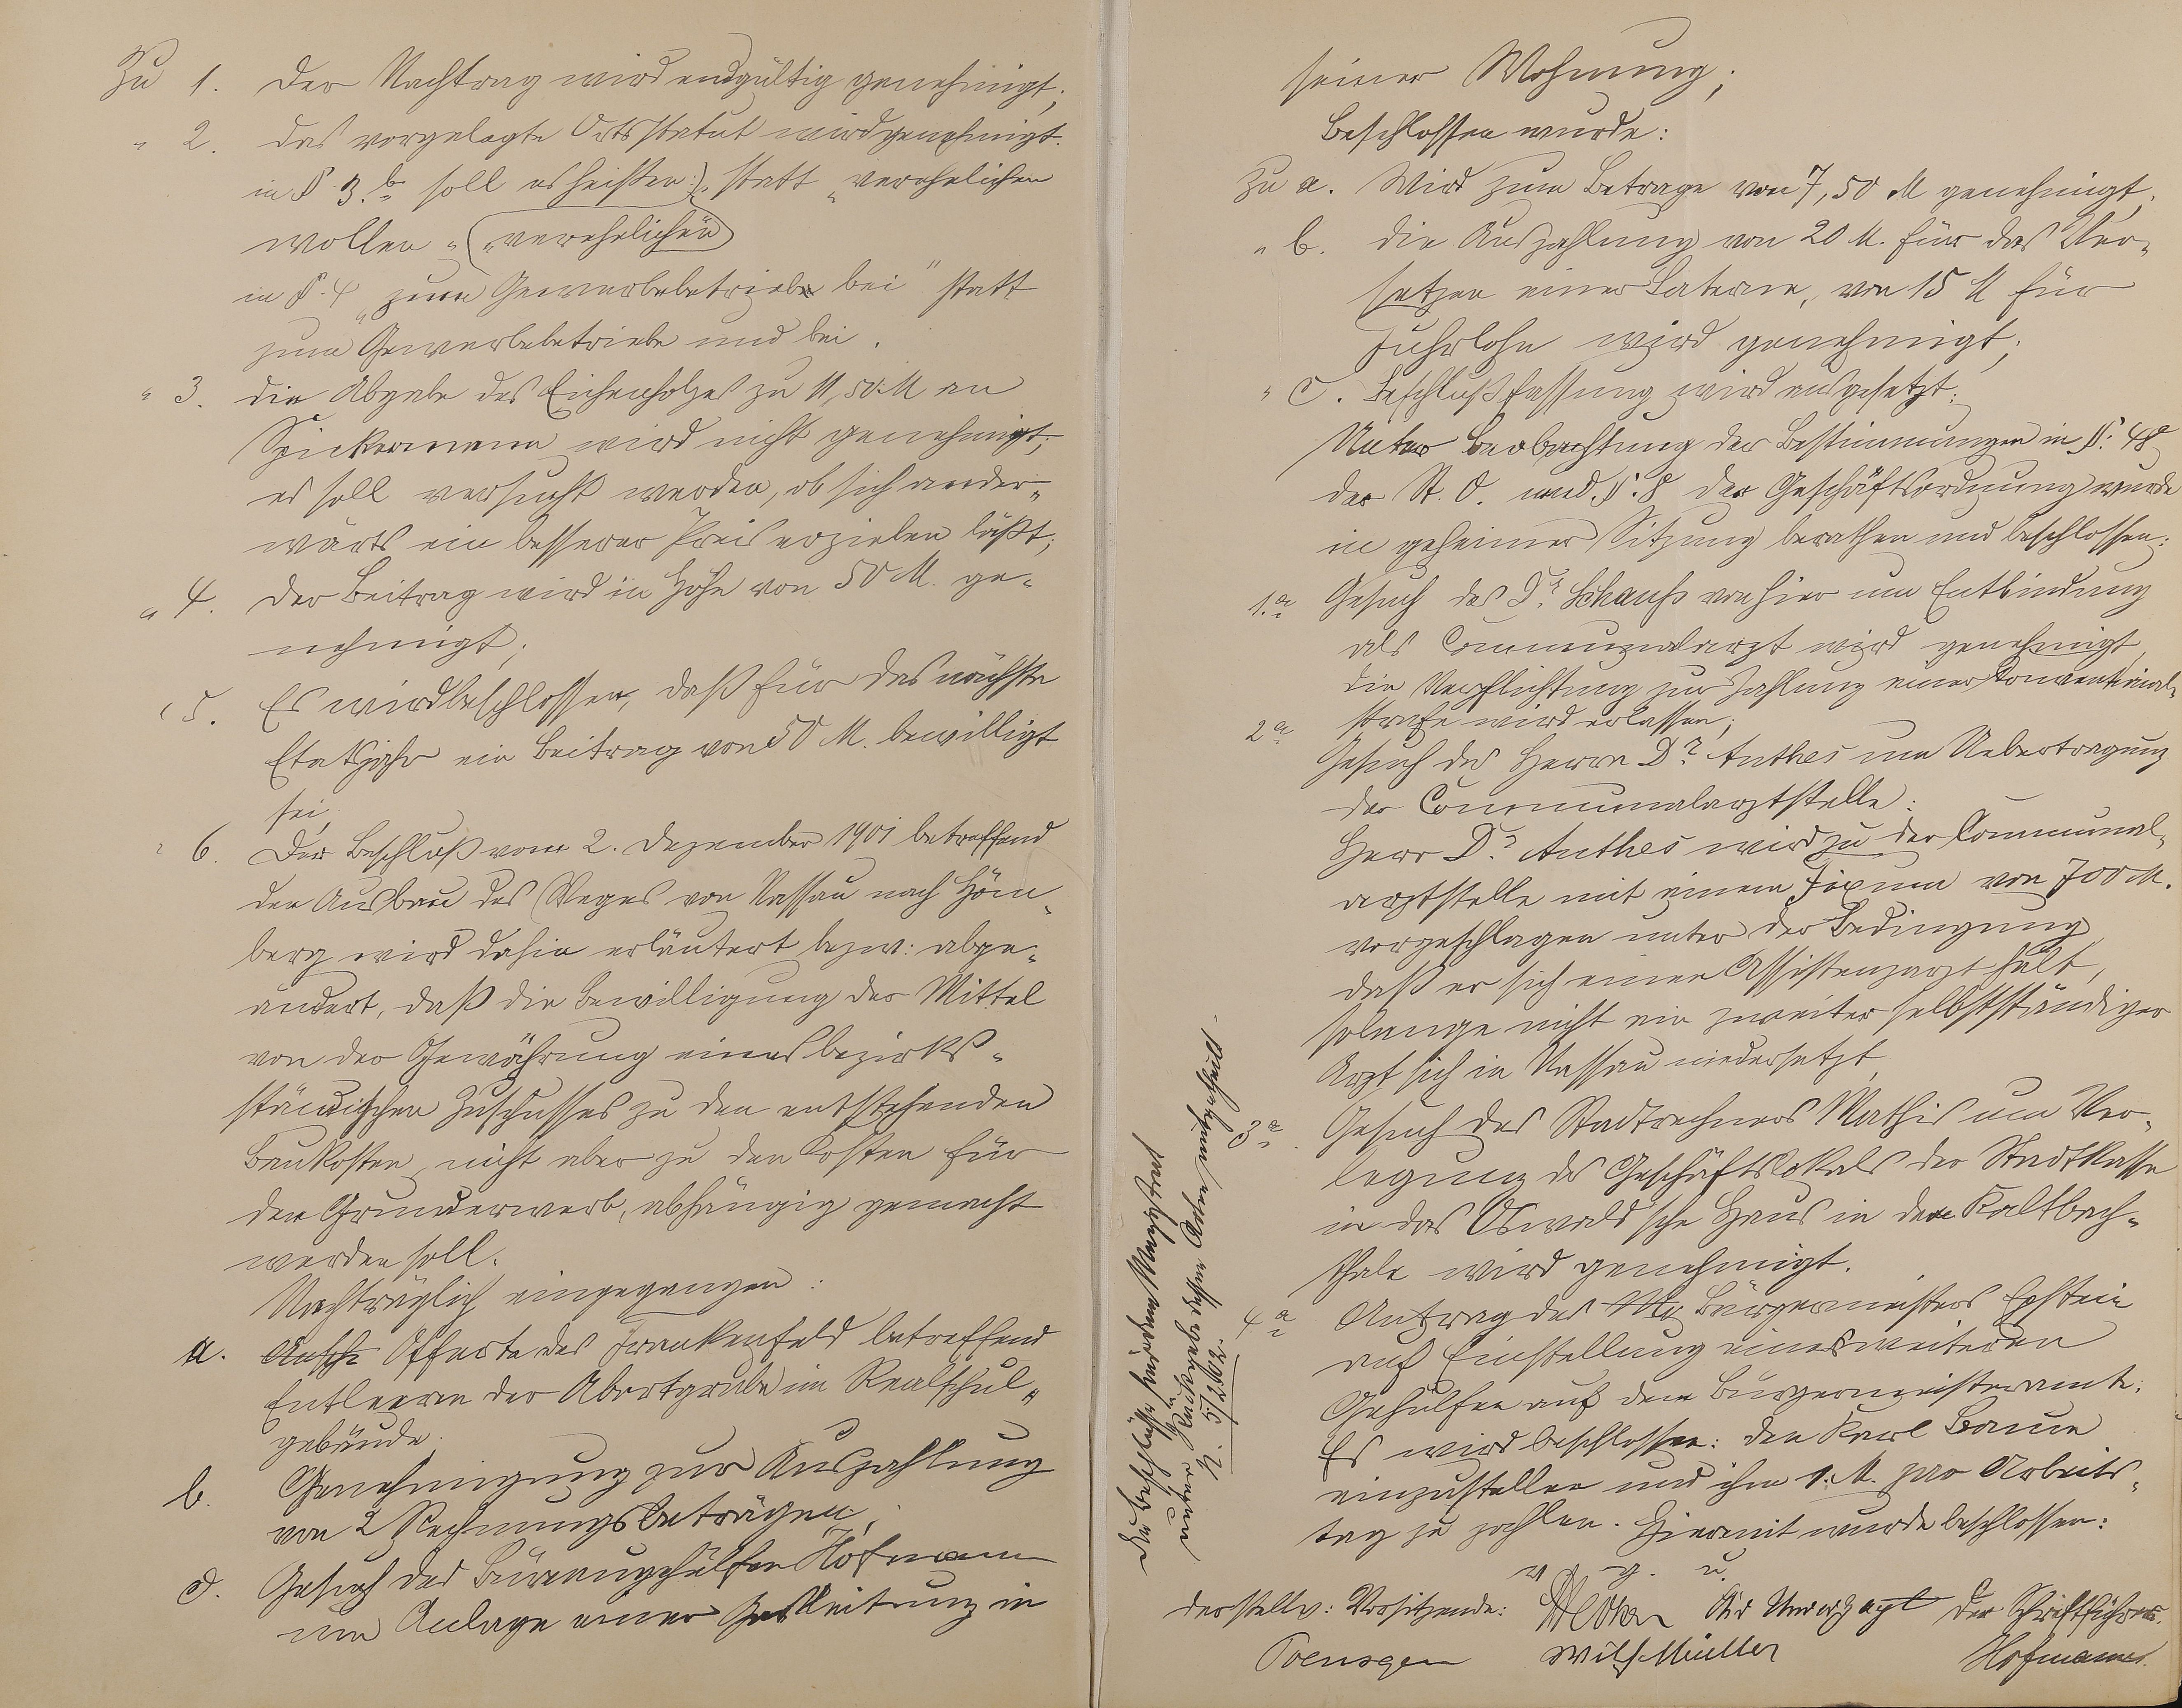 Zu 1. Der Nachtrag wird endgültig genehmigt;
" 2. das vorgelegte Ortsstatut wird genehmigt.
in § 3.b soll es heißen: statt "verehelichen
wollen" "verehelichen"
in §. 4 "zum Gewerbebetriebe bei" statt
zum Gewerbebetriebe und bei.
" 3. die Abgabe des Eichenholzes zu 11,50 M an
Spickermann wird nicht genehmigt;
es soll versucht werden, ob sich ander-
wärts ein besserer Preis erzielen läßt;
" 4. Der Beitrag wird in Höhe von 50 M. ge-
nehmigt;
" 5. Es wird beschlossen, daß für das nächste
Etatsjahr ein Beitrag von 50 M. bewilligt
sei,
" 6. Der Beschluß vom 2. Dezember 1901 betreffend
den Ausbau des Weges von Nassau nach Höm-
berg wird dahin erläutert bezw: abge-
ändert, daß die Bewilligung der Mittel
von der Gewährung eines bezirks-
ständischen Zuschusses zu den entstehenden
Baukosten, nicht aber zu den Kosten für
den Grunderwerb, abhängig gemacht
werden soll.
Nachträglich eingegangen:
a. Offerte des Frankenfeld betreffend
Entleeren der Abortgrube im Realschul-
gebäude.
b. Genehmigung zur Auszahlung
von 2 Rechnungsbeträgen;
c. Gesuch des Büreaugehülfen Hofmann
um Anlage einer Gasleitung in
seiner Wohnung;
Beschlossen wurde:
Zu a. Wird zum Betrage von 7,50 M genehmigt;
" b. die Auszahlung von 20 M. für das Ver-
setzen einer Laterne, von 15 M für
Fuhrlohn wird genehmigt;
" c. Beschlußfassung wird ausgesetzt.
Unter Beobachtung der Bestimmungen in §. 48
der St. O. und §. 8 der Geschäftsordnung wurde
in geheimer Sitzung berathen und beschlossen:
1.a Gesuch des Dr. Schauß von hier um Entbindung
als Communalarzt wird genehmigt,
die Verpflichtung zur Zahlung einer Conventional-
strafe wird erlassen;
2a Gesuch des Herrn Dr. Anthes um Uebertragung
der Communalarztstelle:
Herr Dr. Anthes wird zu der Communal-
arztstelle mit einem Fixum von 700 M.
vorgeschlagen unter der Bedingung
daß er sich einen Assistenzarzt hält,
solange nicht ein zweiter selbstständiger
Arzt sich in Nassau niedersetzt,
3a Gesuch des Stadtrechners Mathis um Ver-
legung des Geschäftslokals der Stadtkasse
in das Oswald'sche Haus in dem Kaltbach-
thale wird genehmigt.
4a Antrag des Bürgermeisters Epstein
auf Einstellung eines weiteren
Gehülfen auf dem Bürgermeisteramte:
Es wird beschlossen: den Karl Baum
einzustellen und ihm 1. M. pro Arbeits-
tag zu zahlen. Hiermit wurde beschlossen:
v. g. u.
der stellv: Vorsitzende: Der Schriftführer.
Poensgen Wilh Müller Hofmann
Die Beschlüsse sind dem Magistrat
unter Rückgabe dessen Akten mitgetheilt.
N. 5/2 02.